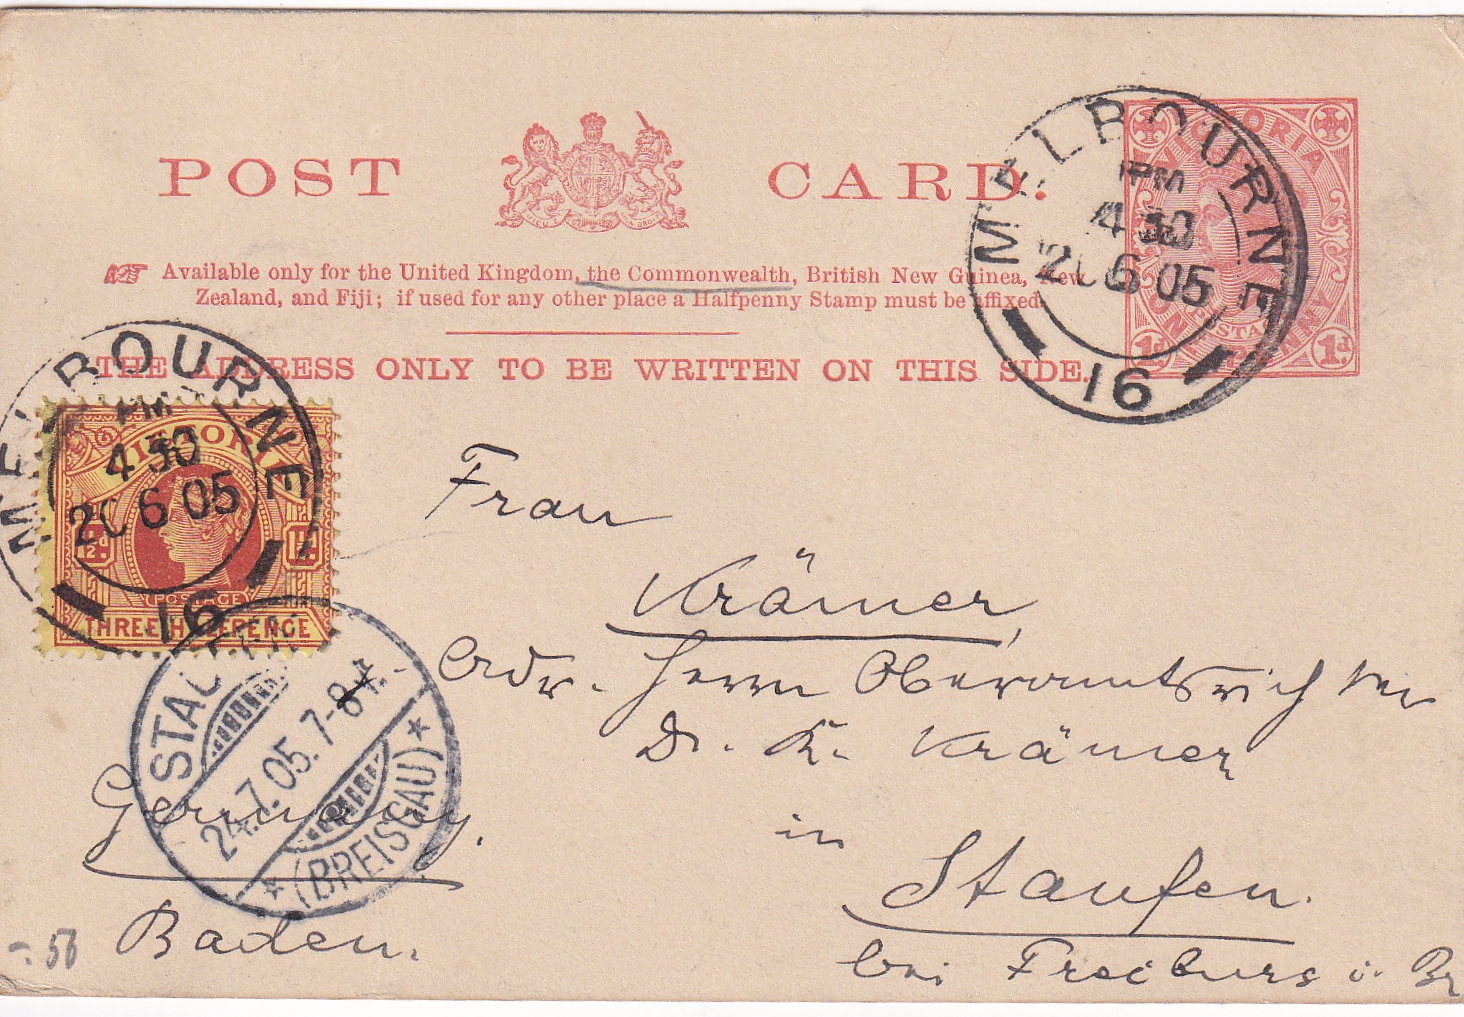 POST CARD.
Available only for the United Kingdom, the Commonwealth, British New Guinea, New
Zealand, and Fiji; if used for any other place a Halfpenny Stamp must be affixed.
THE ADDRESS ONLY TO BE WRITTEN ON THIS SIDE.
VICTORIA
POSTAGE
ONE PENNY
1d. 1d.
MELBOURNE
PM
4 30
20 6 05
16
MELBOURNE
PM
4 30
20 6 05
16
VICTORIA
1½d. 1½d.
POSTAGE
THREE HALFPENCE
STAUFEN
24.7.05. 7-8
(BREISGAU)
Frau
Krämer,
Adr. Herrn Oberamtsrichter
Dr. K. Krämer
in
Staufen.
bei Freiburg i. Br
Germany.
Baden.